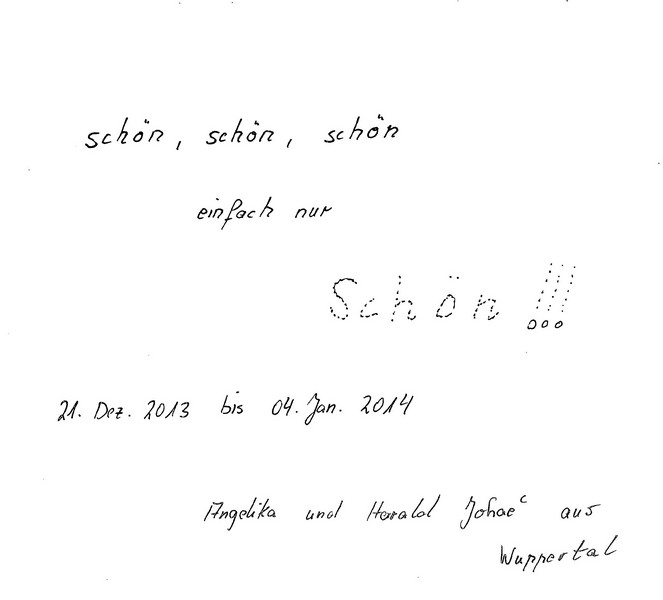 schön, schön, schön
einfach nur
Schön !!!
21. Dez. 2013 bis 04. Jan. 2014
Angelika und Harald aus
Wuppertal